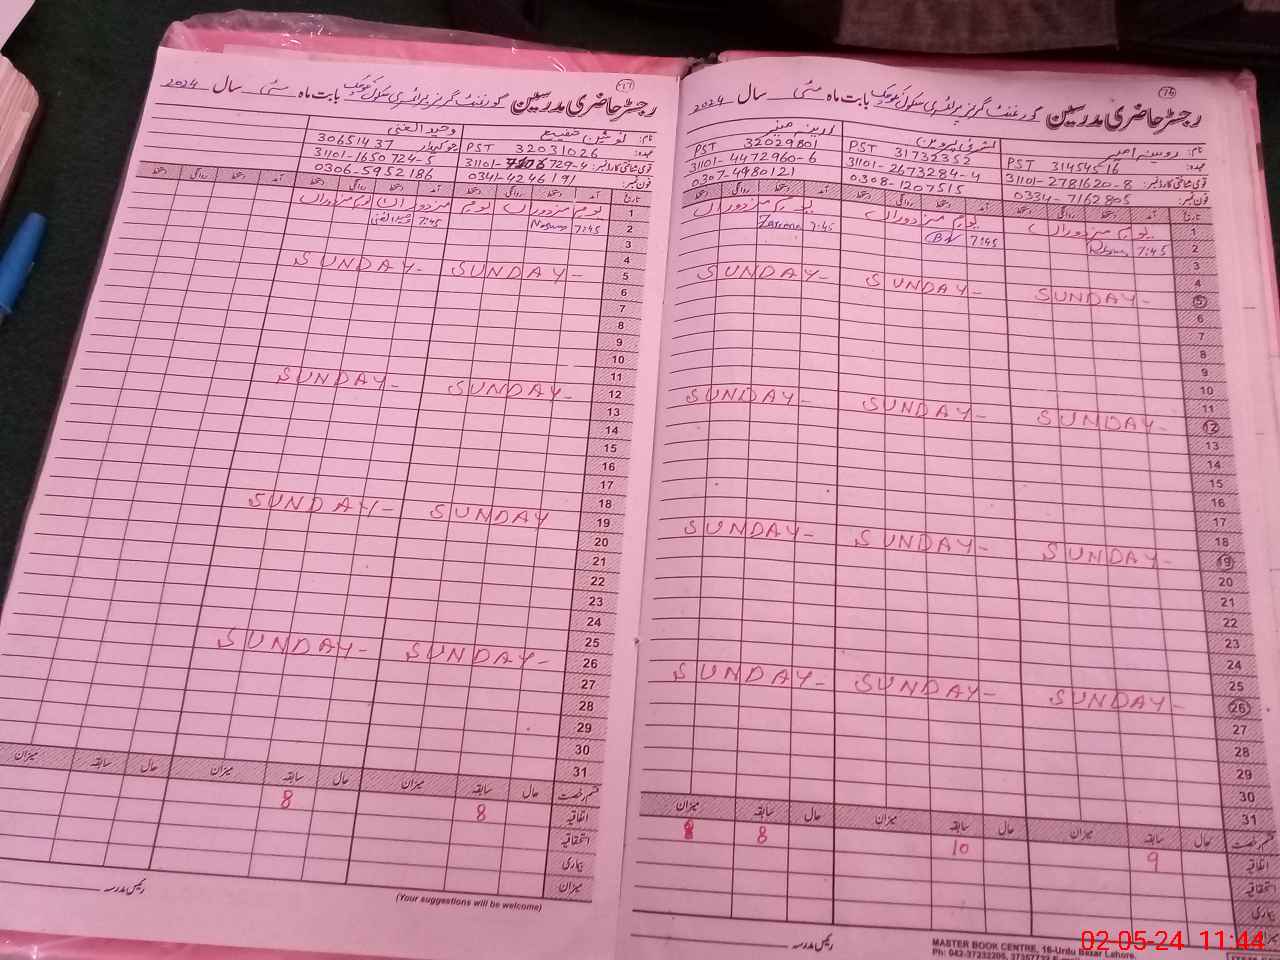 (16)
رجسٹر حاضری مدرسین گورنمنٹ گرلز پرائمری سکول کوٹ بابت ماہ مئی سال 2024
نام:
عہدہ: PST 31454516 PST 31732352 PST 32029801
قومی شناختی کارڈ نمبر: 31101-2781620-8 31101-2673284-4 31101-4472960-6
فون نمبر: 0334-7162805 0308-1207515 0307-4980121
تاریخ آمد دستخط روانگی دستخط آمد دستخط روانگی دستخط آمد دستخط روانگی دستخط
1 یوم مزدوراں یوم مزدوراں یوم مزدوراں
2 7:45 7:45 7:45 Zareena
3
4
5 SUNDAY- SUNDAY- SUNDAY-
6
7
8
9
10
11
12 SUNDAY- SUNDAY- SUNDAY-
13
14
15
16
17
18
19 SUNDAY- SUNDAY- SUNDAY-
20
21
22
23
24
25
26 SUNDAY- SUNDAY- SUNDAY-
27
28
29
30
31
قسم رخصت حال سابقہ میزان حال سابقہ میزان حال سابقہ میزان
اتفاقیہ 9 10 8 8
استحقاقیہ
بیماری
میزان
رئیس مدرسہ
MASTER BOOK CENTRE, 16-Urdu Bazar Lahore.
Ph: 042-37232205,
(17)
رجسٹر حاضری مدرسین گورنمنٹ گرلز پرائمری سکول کوٹ بابت ماہ مئی سال 2024
نام: نوشین حنیف وحید الغنی
عہدہ: PST 32031026 چوکیدار 30651437
قومی شناختی کارڈ نمبر: 729-4 31101-1650724-5
فون نمبر: 0341-4246191 0306-5952186
تاریخ آمد دستخط روانگی دستخط آمد دستخط روانگی دستخط آمد دستخط روانگی دستخط
1 یوم مزدوراں یوم مزدوراں
2 7:45 7:45 وحید الغنی
3
4
5 SUNDAY- SUNDAY-
6
7
8
9
10
11
12 SUNDAY- SUNDAY-
13
14
15
16
17
18
19 SUNDAY SUNDAY-
20
21
22
23
24
25
26 SUNDAY- SUNDAY-
27
28
29
30
31
قسم رخصت حال سابقہ میزان حال سابقہ میزان حال سابقہ میزان
اتفاقیہ 8 8
استحقاقیہ
بیماری
میزان
رئیس مدرسہ
(Your suggestions will be welcome)
02-05-24 11:44